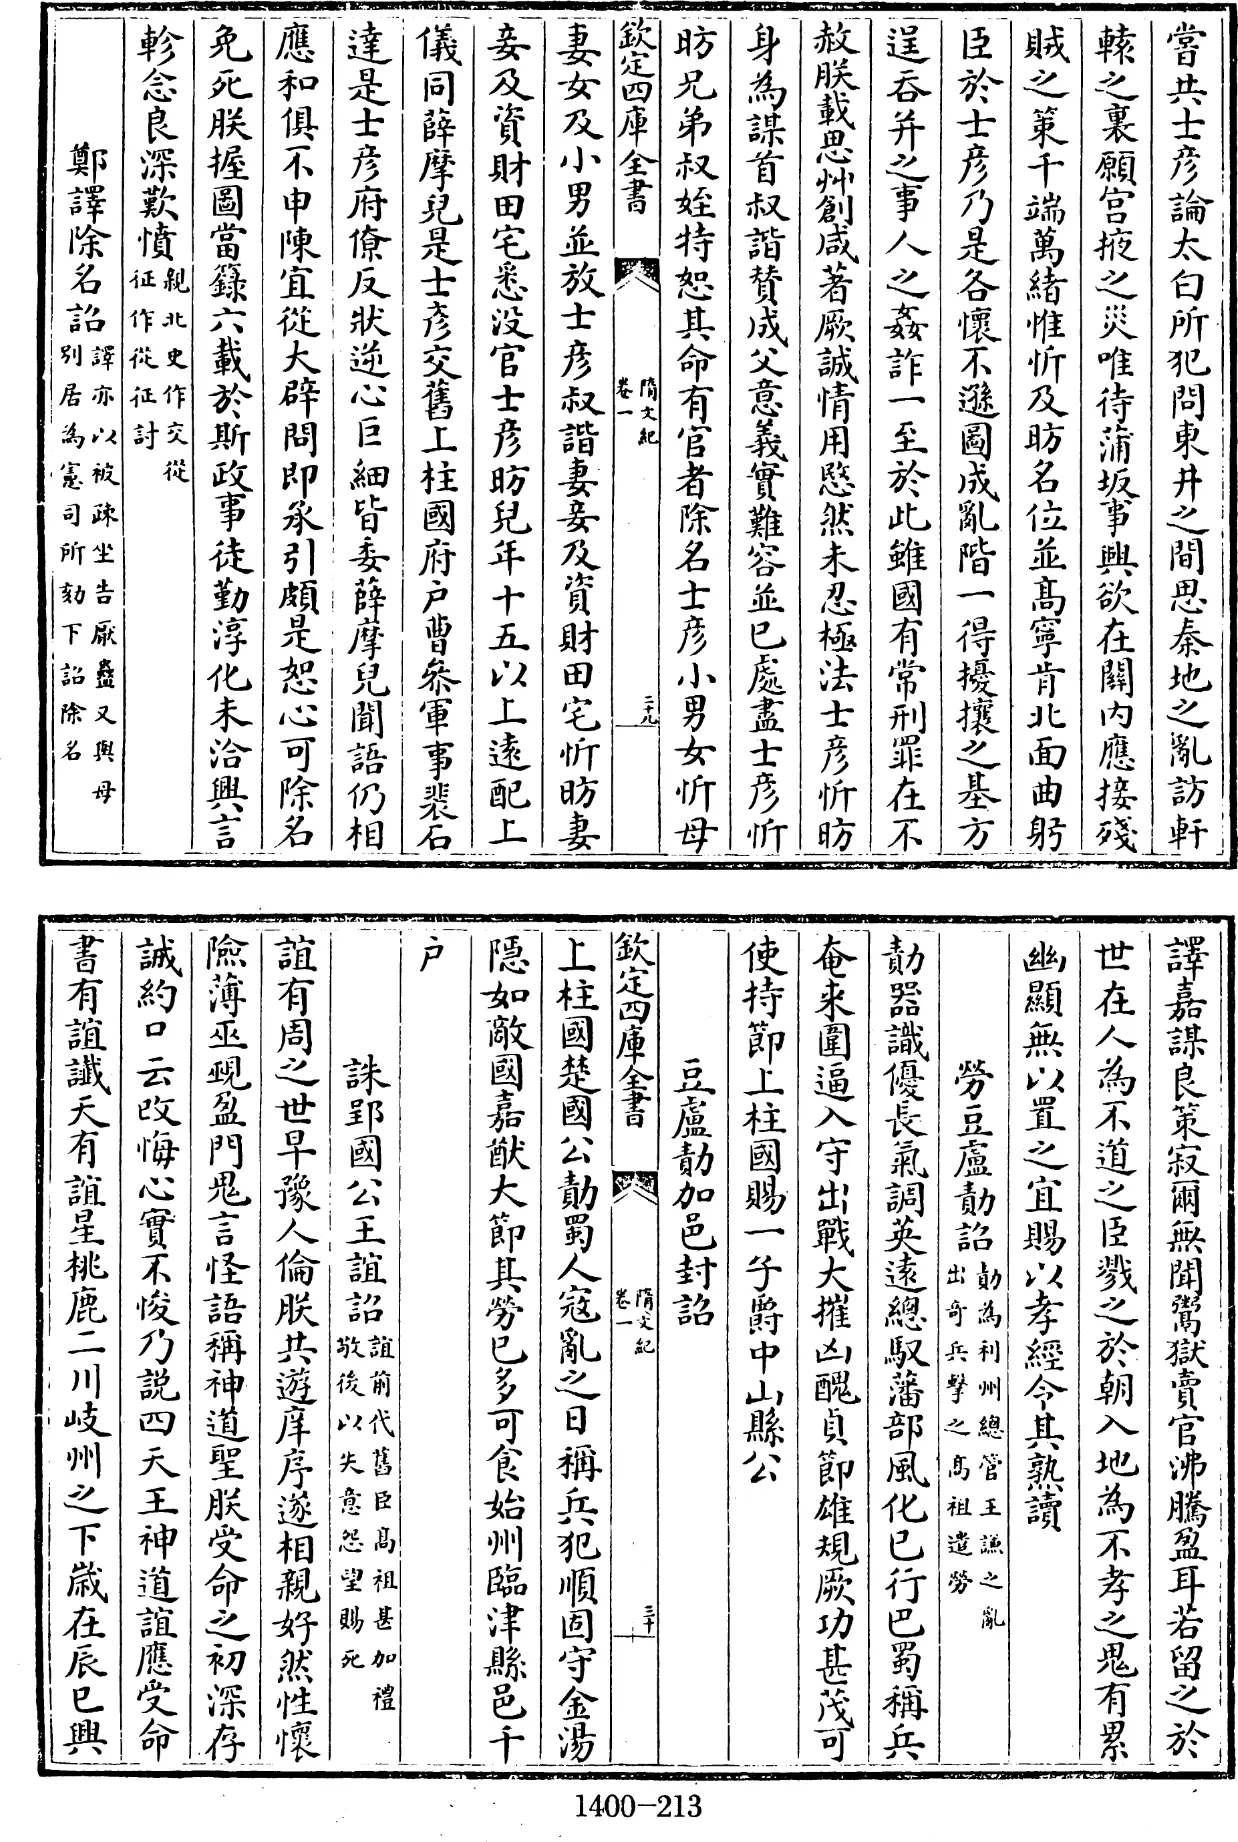 嘗共士彦論太白所犯問東井之間思秦地之亂訪軒
轅之裏願宫掖之災唯待蒲坂事興欲在關内應接殘
賊之策千端萬緒惟忻及昉名位並髙寧肯北面曲躬
臣於士彦乃是各懷不遜圖成亂階一得擾攘之基方
逞吞并之事人之姦詐一至於此雖國有常刑罪在不
赦朕載思艸創咸著厥誠情用愍然未忍極法士彦忻昉
身為謀首叔諧賛成父意義實難容並已處盡士彦忻
昉兄弟叔姪特恕其命有官者除名士彦小男女忻母
欽定四庫全書
隋文紀
卷一
二十九
妻女及小男並放士彦叔諧妻妾及資財田宅忻昉妻
妾及資財田宅悉沒官士彦昉兒年十五以上逺配上
儀同薛摩兒是士彦交舊上柱國府户曹叅軍事裴石
達是士彦府僚反狀逆心巨細皆委薛摩兒聞語仍相
應和俱不申陳宜從大辟問即承引頗是恕心可除名
免死朕握圖當籙六載於斯政事徒勤淳化未洽興言
軫念良深歎憤親北史作交從
征作從征討
鄭譯除名詔譯亦以被疎坐告厭蠱又與母
别居為憲司所劾下詔除名
譯嘉謀良策寂爾無聞鬻獄賣官沸騰盈耳若留之於
世在人為不道之臣戮之於朝入地為不孝之鬼有累
幽顯無以置之宜賜以孝經令其熟讀
勞豆盧勣詔勣為利州總管王謙之亂
出奇兵擊之髙祖遣勞
勣器識優長氣調英逺總馭藩部風化已行巴蜀稱兵
奄來圍逼入守出戰大摧凶醜貞節雄規厥功甚茂可
使持節上柱國賜一子爵中山縣公
豆盧勣加邑封詔
欽定四庫全書
隋文紀
卷一
三十
上柱國楚國公勣蜀人寇亂之日稱兵犯順固守金湯
隱如敵國嘉猷大節其勞已多可食始州臨津縣邑千
户
誅郢國公王誼詔誼前代舊臣髙祖甚加禮
敬後以失意怨望賜死
誼有周之世早豫人倫朕共遊庠序遂相親好然性懷
險薄巫覡盈門鬼言怪語稱神道聖朕受命之初深存
誡約口云改悔心實不悛乃説四天王神道誼應受命
書有誼讖天有誼星桃鹿二川岐州之下歳在辰巳興
1400-213